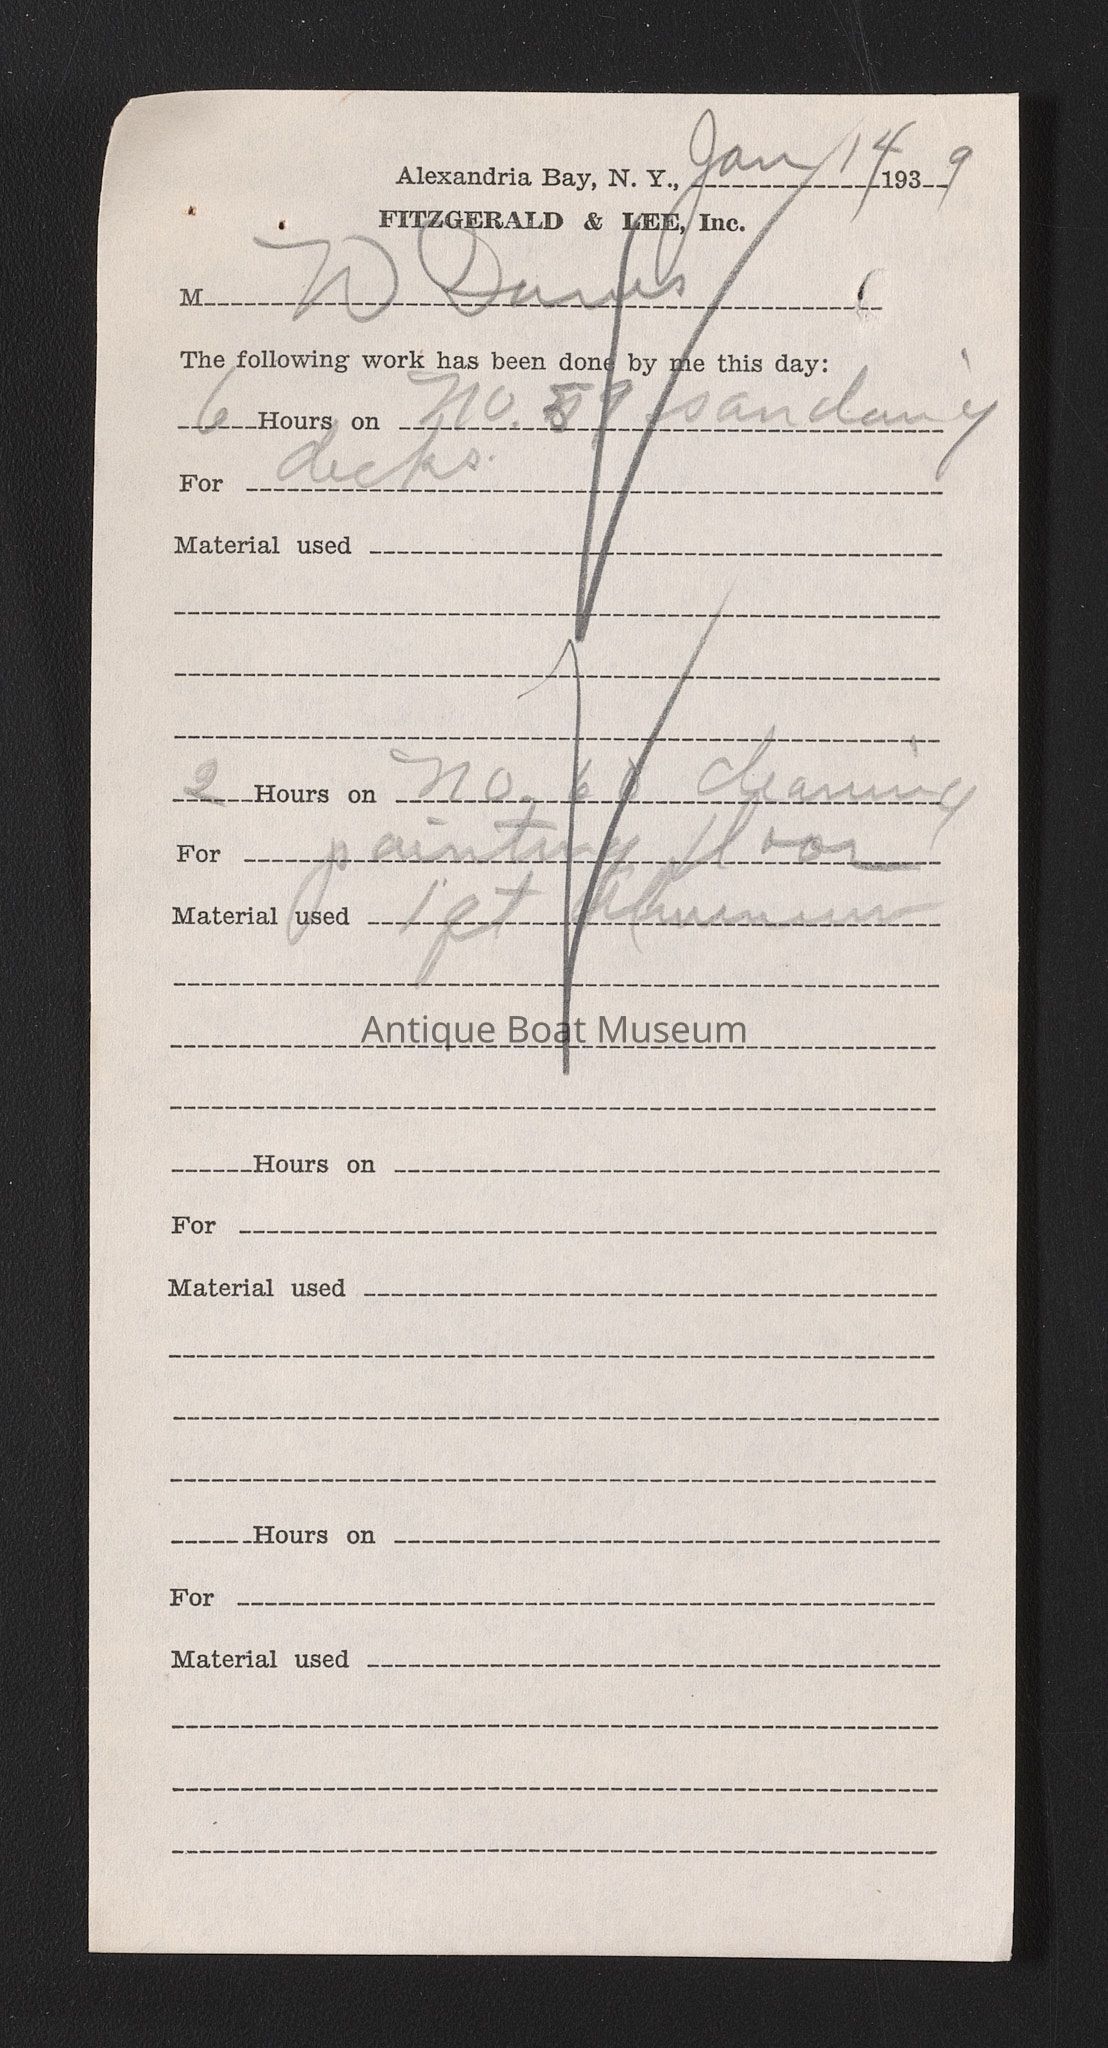 Alexandria Bay, N. Y., Jan 14 1939
FITZGERALD & LEE, Inc.
M W Davis
The following work has been done by me this day:
6 Hours on No. 59 sandaing
For decks.
Material used
2 Hours on No. 60 cleaning
For painting floor
Material used 1 qt Aluminum
Antique Boat Museum
Hours on
For
Material used
Hours on
For
Material used